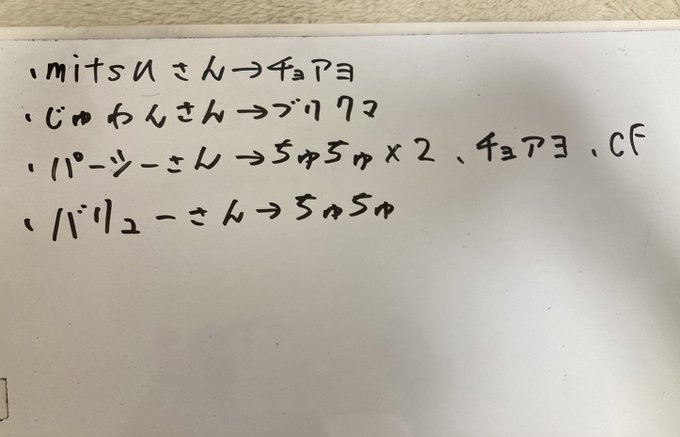 ・mitsuさん→チョアヨ
・じゅわんさん→ブリクマ
・パーシーさん→ちゅちゅ×2、チョアヨ、CF
・バリューさん→ちゅちゅ